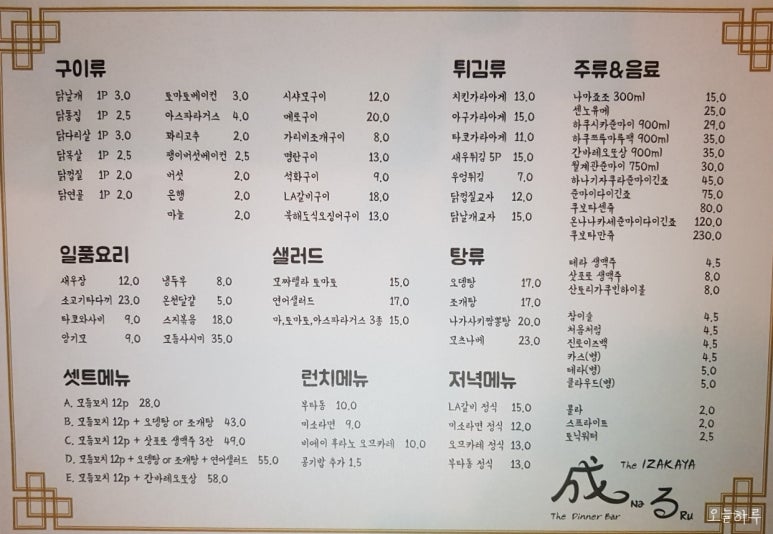 구이류
닭날개 1P 3.0
닭똥집 1P 2.5
닭다리살 1P 3.0
닭목살 1P 2.5
닭껍질 1P 2.0
닭연골 1P 2.0
토마토베이컨 3.0
아스파라거스 4.0
꽈리고추 2.0
팽이버섯베이컨 2.5
버섯 2.0
은행 2.0
마늘 2.0
시샤모구이 12.0
메로구이 20.0
가리비조개구이 8.0
명란구이 13.0
석화구이 9.0
LA갈비구이 18.0
북해도식오징어구이 13.0
튀김류
치킨가라아게 13.0
아구가라아게 15.0
타코가라아게 11.0
새우튀김 5P 15.0
우엉튀김 7.0
닭껍질교자 12.0
닭날개교자 15.0
주류&음료
나마죠조 300ml 15.0
센노유메 25.0
하쿠시카준마이 900ml 29.0
하쿠쯔루마루팩 900ml 35.0
간바레오또상 900ml 35.0
월계관준마이 750ml 30.0
하나기자쿠라준마이긴죠 45.0
준마이다이긴죠 75.0
쿠보타센쥬 80.0
온나나카세준마이다이긴죠 120.0
쿠보타만쥬 230.0
테라 생맥주 4.5
삿포로 생맥주 8.0
산토리가쿠빈하이볼 8.0
참이슬 4.5
처음처럼 4.5
진로이즈백 4.5
카스(병) 4.5
테라(병) 5.0
클라우드(병) 5.0
콜라 2.0
스프라이트 2.0
토닉워터 2.5
일품요리
새우장 12.0
소고기타다끼 23.0
타코와사비 9.0
앙기모 9.0
냉두부 8.0
온천달걀 5.0
스지볶음 18.0
모듬사시미 35.0
샐러드
모짜렐라 토마토 15.0
연어샐러드 17.0
마,토마토,아스파라거스 3종 15.0
탕류
오뎅탕 17.0
조개탕 17.0
나가사키짬뽕탕 20.0
모츠나베 23.0
셋트메뉴
A. 모듬꼬치 12p 28.0
B. 모듬꼬치 12p + 오뎅탕 or 조개탕 43.0
C. 모듬꼬치 12p + 삿포로 생맥주 3잔 49.0
D. 모듬꼬치 12p + 오뎅탕 or 조개탕 + 연어샐러드 55.0
E. 모듬꼬치 12p + 간바레오또상 58.0
런치메뉴
부타동 10.0
미소라면 9.0
비에이 후라노 오므카레 10.0
공기밥 추가 1.5
저녁메뉴
LA갈비 정식 15.0
미소라면 정식 12.0
오므카레 정식 13.0
부타동 정식 13.0
The IZAKAYA
成 Na る Ru
The Dinner Bar
오늘하루